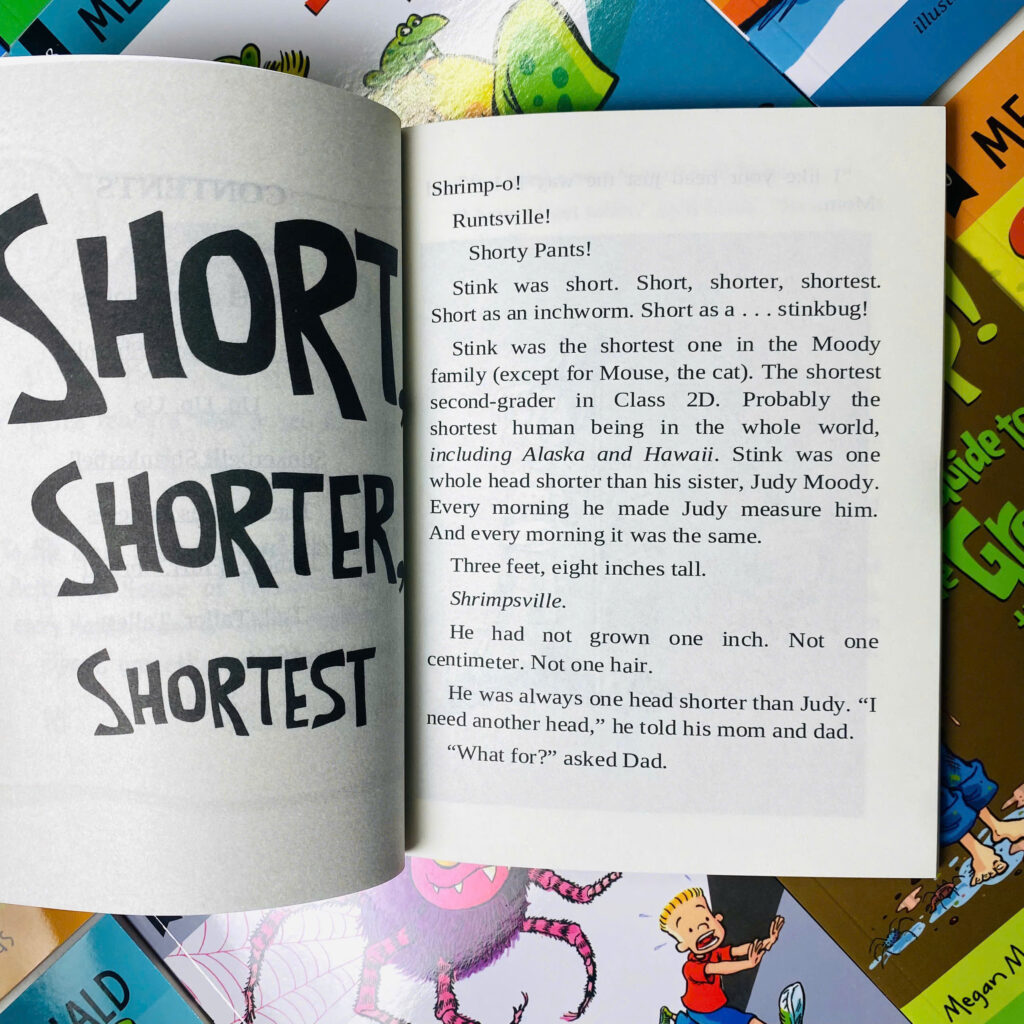 ME
illust
ME
SHORT,
SHORTER,
SHORTEST
Shrimp-o!
Runtsville!
Shorty Pants!
Stink was short. Short, shorter, shortest.
Short as an inchworm. Short as a . . . stinkbug!
Stink was the shortest one in the Moody
family (except for Mouse, the cat). The shortest
second-grader in Class 2D. Probably the
shortest human being in the whole world,
including Alaska and Hawaii. Stink was one
whole head shorter than his sister, Judy Moody.
Every morning he made Judy measure him.
And every morning it was the same.
Three feet, eight inches tall.
Shrimpsville.
He had not grown one inch. Not one
centimeter. Not one hair.
He was always one head shorter than Judy. “I
need another head,” he told his mom and dad.
“What for?” asked Dad.
uide to
Gr
NALD
Megan M